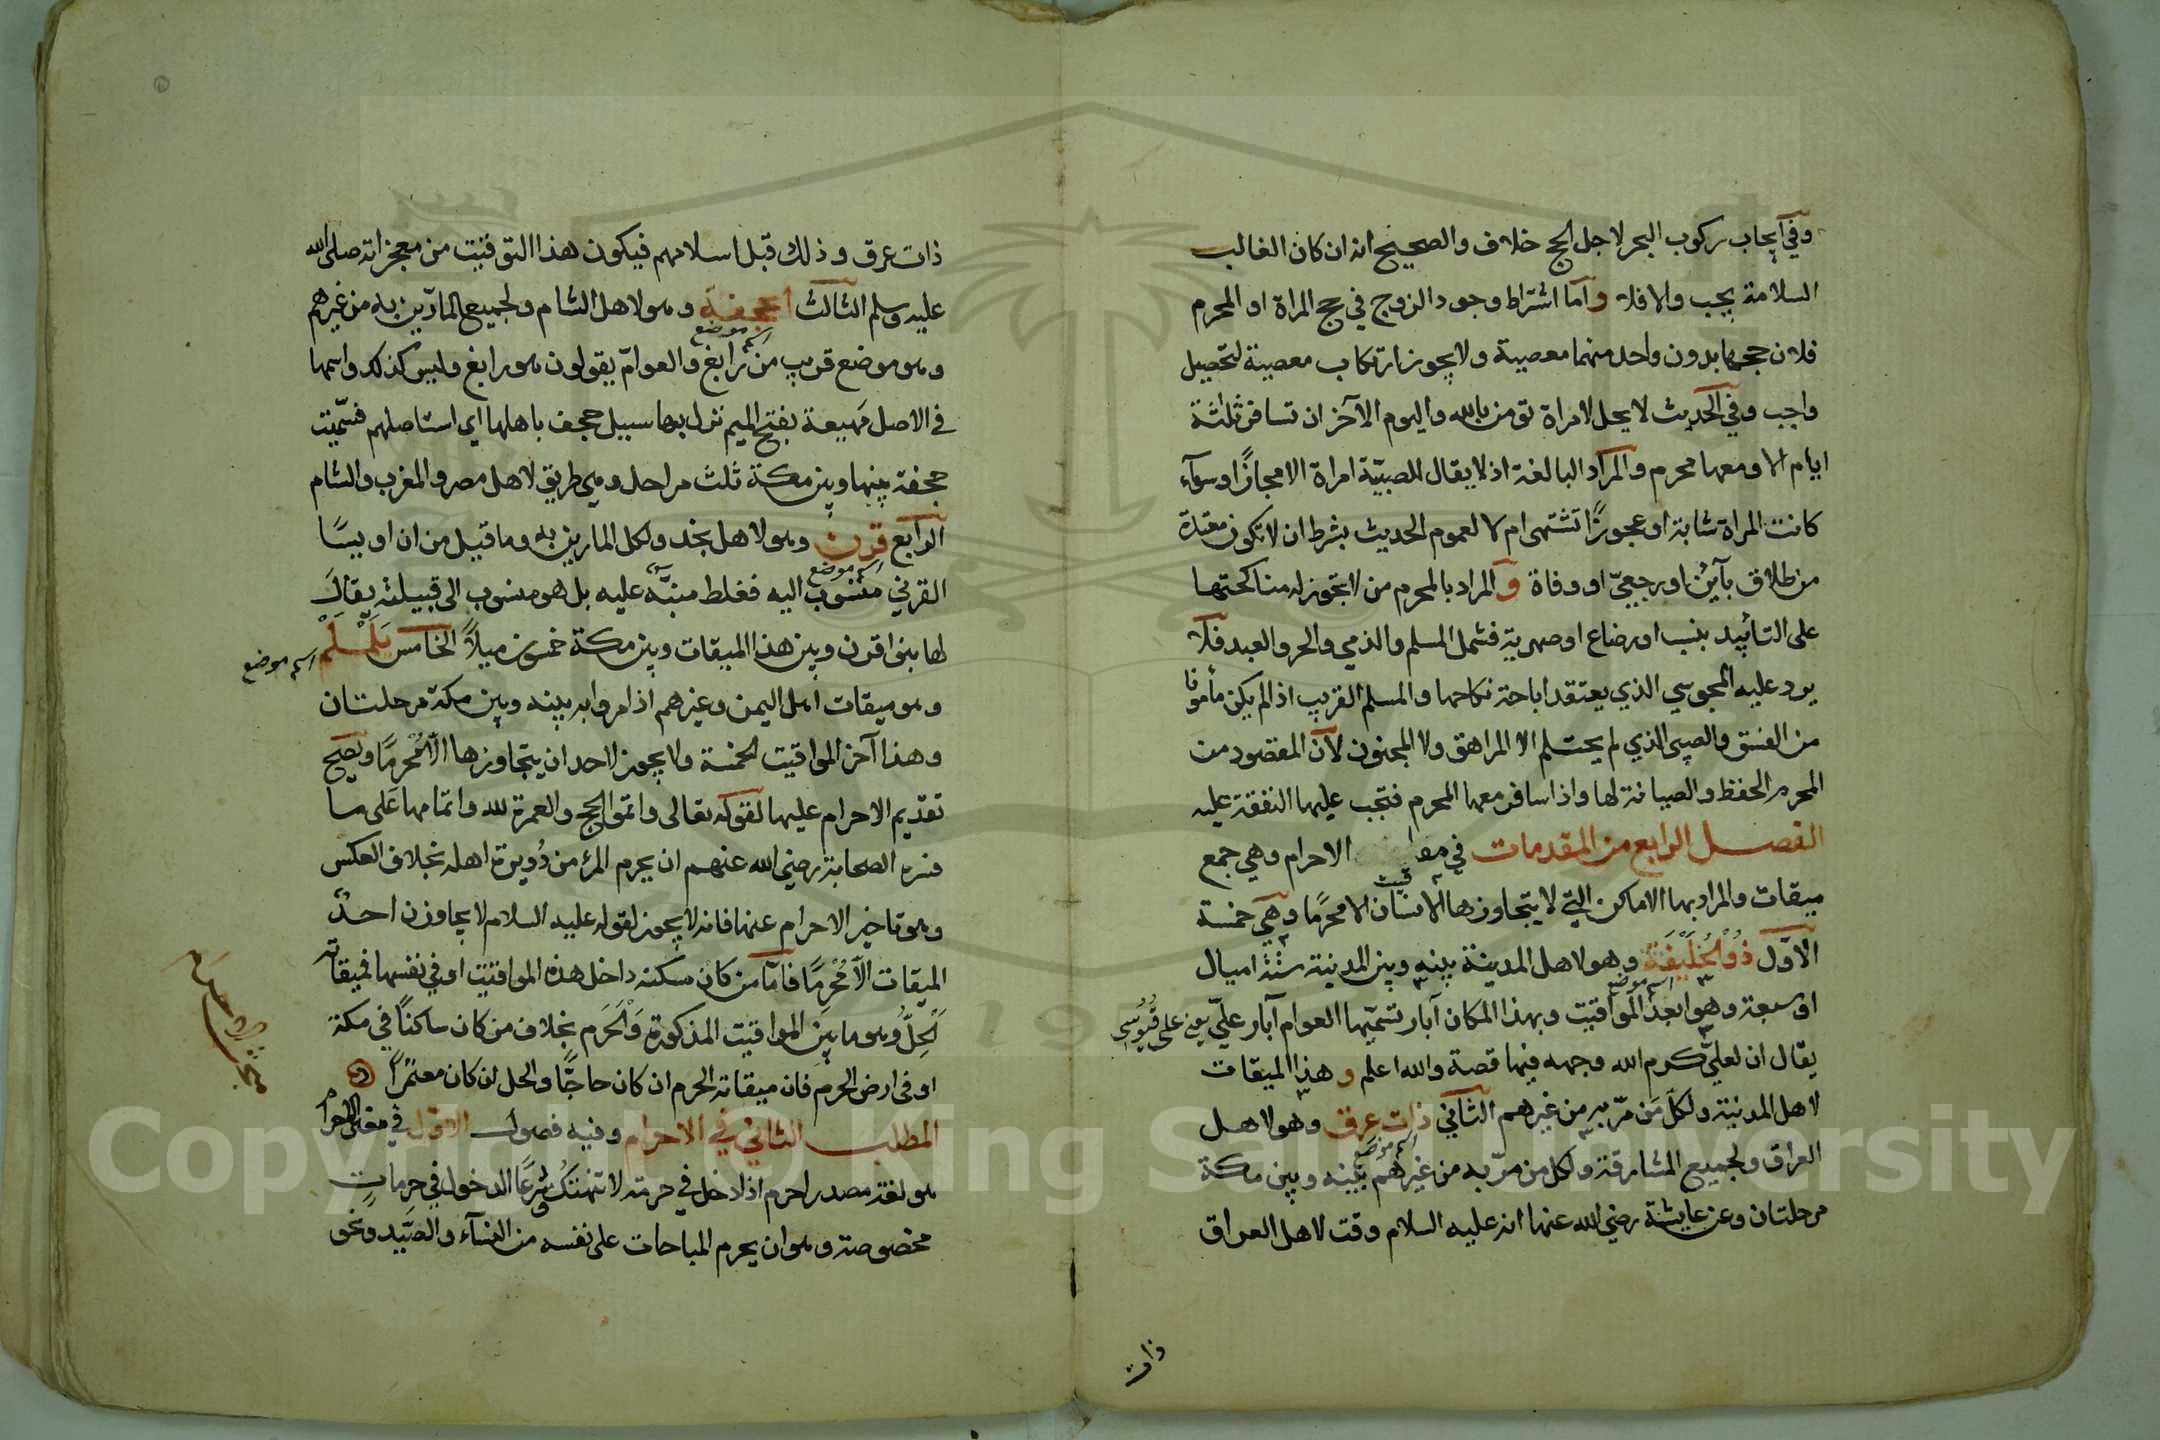 وفي ايجاب ركوب البحر لاجل الحج خلاف والصحيح انه ان كان الغالب
السلامة يجب والا فلا واما اشتراط وجود الزوج في حج المراة او المحرم
فلان حجها بدون واحد منهما معصية ولا يجوز ارتكاب معصية لتحصيل
واجب وفي الحديث لا يحل لامراة تومن بالله واليوم الآخر ان تسافر ثلثة
ايام الا ومعها محرم والمراد البالغة اذ لا يقال للصبيّة امراة الا مجازًا وسوآء
كانت المراة شابة او عجوزًا تشتهى ام لا لعموم الحديث بشرط ان لا تكون معتدة
من طلاق بآين او رجعيّ او وفاة والمراد بالمحرم من لا تجوز له مناكحتها
على التأبيد بنسب او رضاع او صهرية فشمل المسلم والذمي والحر والعبد فلا
يرد عليه المجوسي الذي يعتقد اباحة نكاحها والمسلم القريب اذا لم يكن مأمونا
من الفسق والصبي الذي لم يحتلم الا المراهق ولا المجنون لان المقصود من
المحرم الحفظ والصيانة لها واذا سافر معها المحرم فتجب عليها النفقة عليه
الفصل الرابع من المقدمات في مواقيت الاحرام وهي جمع
ميقات والمراد بها الاماكن التي لا يتجاوزها الانسان الا محرمًا وهي خمسة
الاوّل ذُوالْحُلَيْفَة وهو لاهل المدينة بينه وبين المدينة ستة اميال
اسم موضع
او سبعة وهو ابعد المواقيت وبهذا المكان آبار تسمّيها العوام آبار عليّ
يقال ان لعليّ كرم الله وجهه فيها قصة والله اعلم وهذا الميقات
لاهل المدينة ولكل من مرّ به من غيرهم الثاني ذات عرق وهو لاهل
اسم موضع
العراق ولجميع المشارقة ولكل من مرّ به من غيرهم بينه وبين مكة
مرحلتان وعن عايشة رضي الله عنها انه عليه السلام وقت لاهل العراق
ذات
ذات عرق وذلك قبل اسلامهم فيكون هذا التوقيت من معجزاته صلى الله
عليه وسلم الثالث الجحفة وهو لاهل الشام ولجميع المارّين به من غيرهم
اسم موضع
وهو موضع قريب من رابغ والعوامّ يقولون هو رابغ وليس كذلك واسمها
في الاصل مَهيعة بفتح الميم نزل بها سيل جحف باهلها اي استاصلهم فسمّيت
جحفة بينها وبين مكة ثلث مراحل وهي طريق لاهل مصر والمغرب والشام
الرابع قرن وهو لاهل نجد ولكل المارين به وما قيل من ان اويسًا
اسم موضع
القرني منسوب اليه فغلط منبّه عليه بل هو منسوب الى قبيلة يقال
لها بنوا قرن وبين هذا الميقات وبين مكة خمسون ميلاً الخامس يَلَمْلَمْ
اسم موضع
وهو ميقات اهل اليمن وغيرهم اذا مروا به بينه وبين مكة مرحلتان
وهذا آخر المواقيت الخمسة ولا يجوز لاحد ان يتجاوزها الا محرمًا ويصح
تقديم الاحرام عليها لقوله تعالى واتموا الحج والعمرة لله واتمامها على ما
فسره الصحابة رضي الله عنهم ان يحرم المرء من دُويرة اهله بخلاف العكس
وهو تاخير الاحرام عنها فانه لا يجوز لقوله عليه السلام لا يجاوزن احدٌ
الميقات الا محرمًا فامّا من كان مسكنه داخل هذه المواقيت او في نفسها فميقاته
الحِلّ وهو ما بين المواقيت المذكورة وَالْحَرَم بخلاف من كان ساكنًا في مكة
او في ارض الحرم فان ميقاته الحرم ان كان حاجًّا والحل ان كان معتمرًا
المطلب الثاني في الاحرام وفيه فصول الاول في معنى الاحرام
هو لغة مصدر احرم اذا دخل في حرمة لا تنهتك وشرعًا الدخول في حرمات
مخصوصة وهو ان يحرم المباحات على نفسه من النسآء والصّيد ونحو